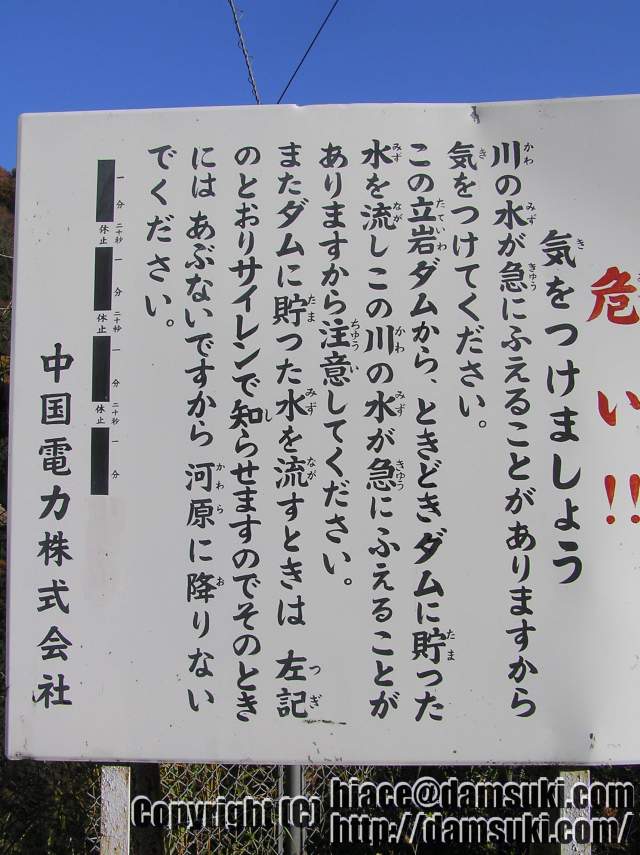 危い!!
気をつけましょう
川の水が急にふえることがありますから
気をつけてください。
この立岩ダムから、ときどきダムに貯った
水を流しこの川の水が急にふえることが
ありますから注意してください。
またダムに貯った水を流すときは 左記
のとおりサイレンで知らせますのでそのとき
には あぶないですから 河原に降りない
でください。
一分
二十秒
休止
一分
二十秒
休止
一分
二十秒
休止
一分
中国電力株式会社
Copyright (C) hiace@damsuki.com
http://damsuki.com/